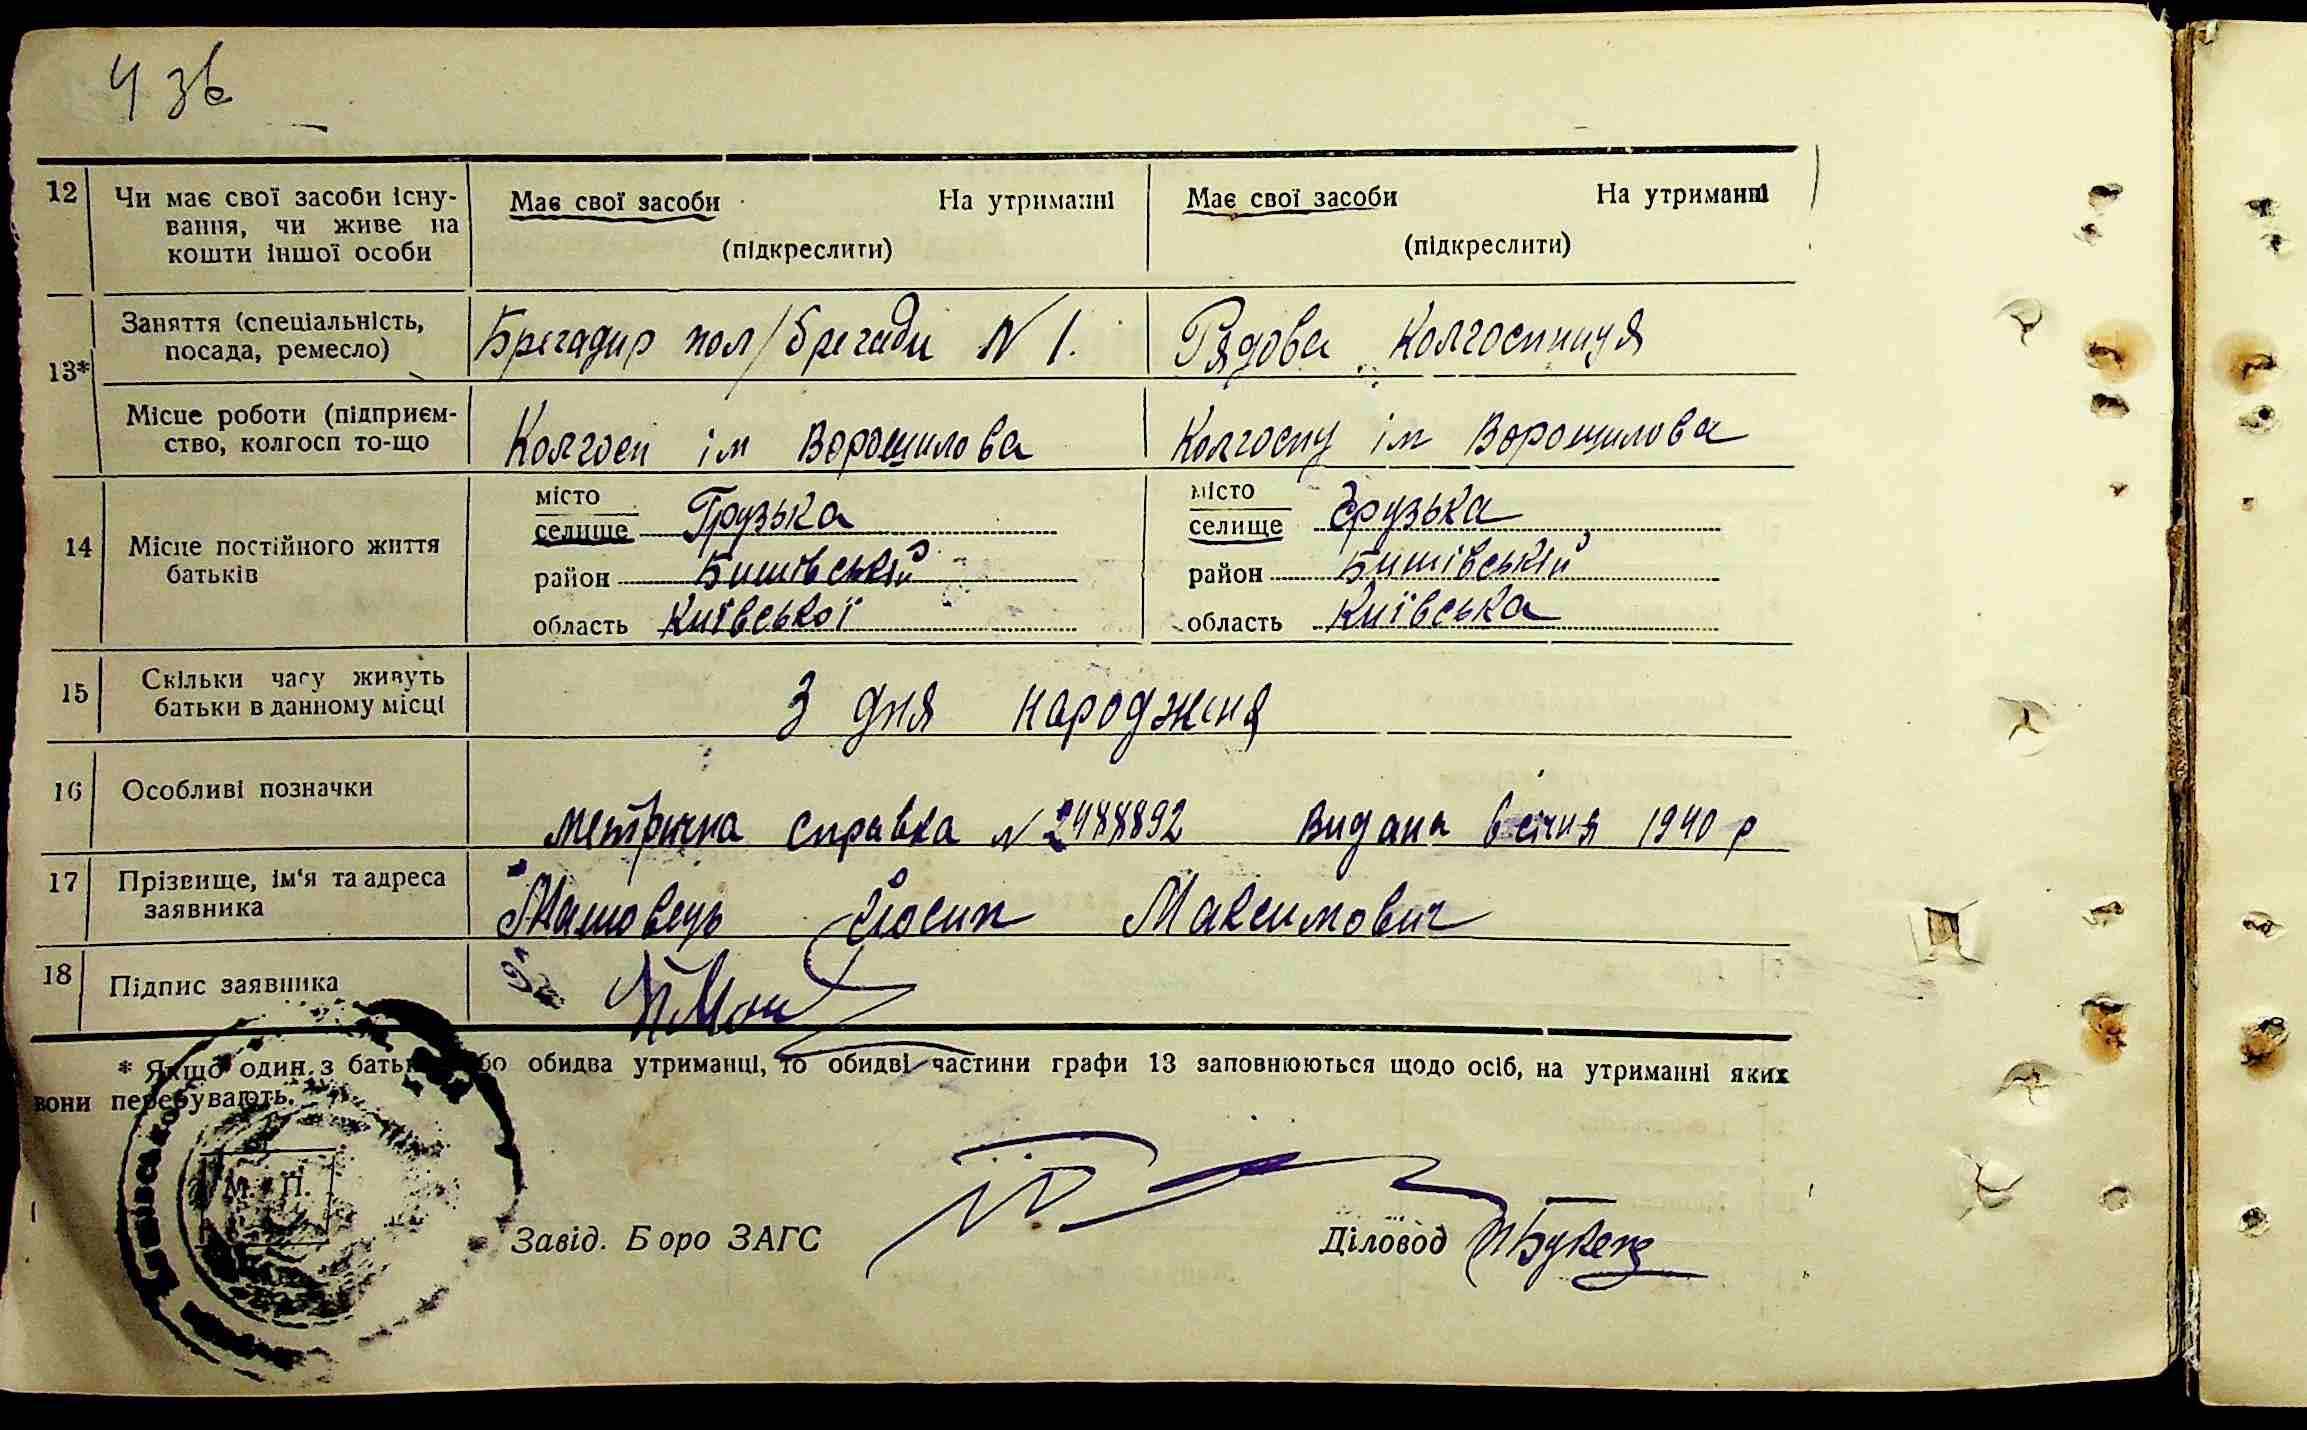 4 зв
12 Чи має свої засоби існу- Має свої засоби На утриманні Має свої засоби На утриманні
вання, чи живе на
кошти іншої особи (підкреслити) (підкреслити)
13* Заняття (спеціальність, Бригадир пол/бригади N 1. Рядова колгоспниця
посада, ремесло)
Місце роботи (підприєм- Колгосп ім Ворошилова Колгоспу ім Ворошилова
ство, колгосп то-що
14 Місце постійного життя місто місто
батьків селище Грузька селище Грузька
район Бишівський район Бишівський
область Київської область Київська
15 Скільки часу живуть З дня народженя
батьки в данному місці
16 Особливі позначки Метрична справка N 2488892 Видана 6 січня 1940 р
17 Прізвище, ім'я та адреса Йосип Максимович
заявника
18 Підпис заявника
* Якщо один з обидва утриманці, то обидві частини графи 13 заповнюються щодо осіб, на утриманні яких
вони перебувають.
М. П.
Завід. Б оро ЗАГС Діловод